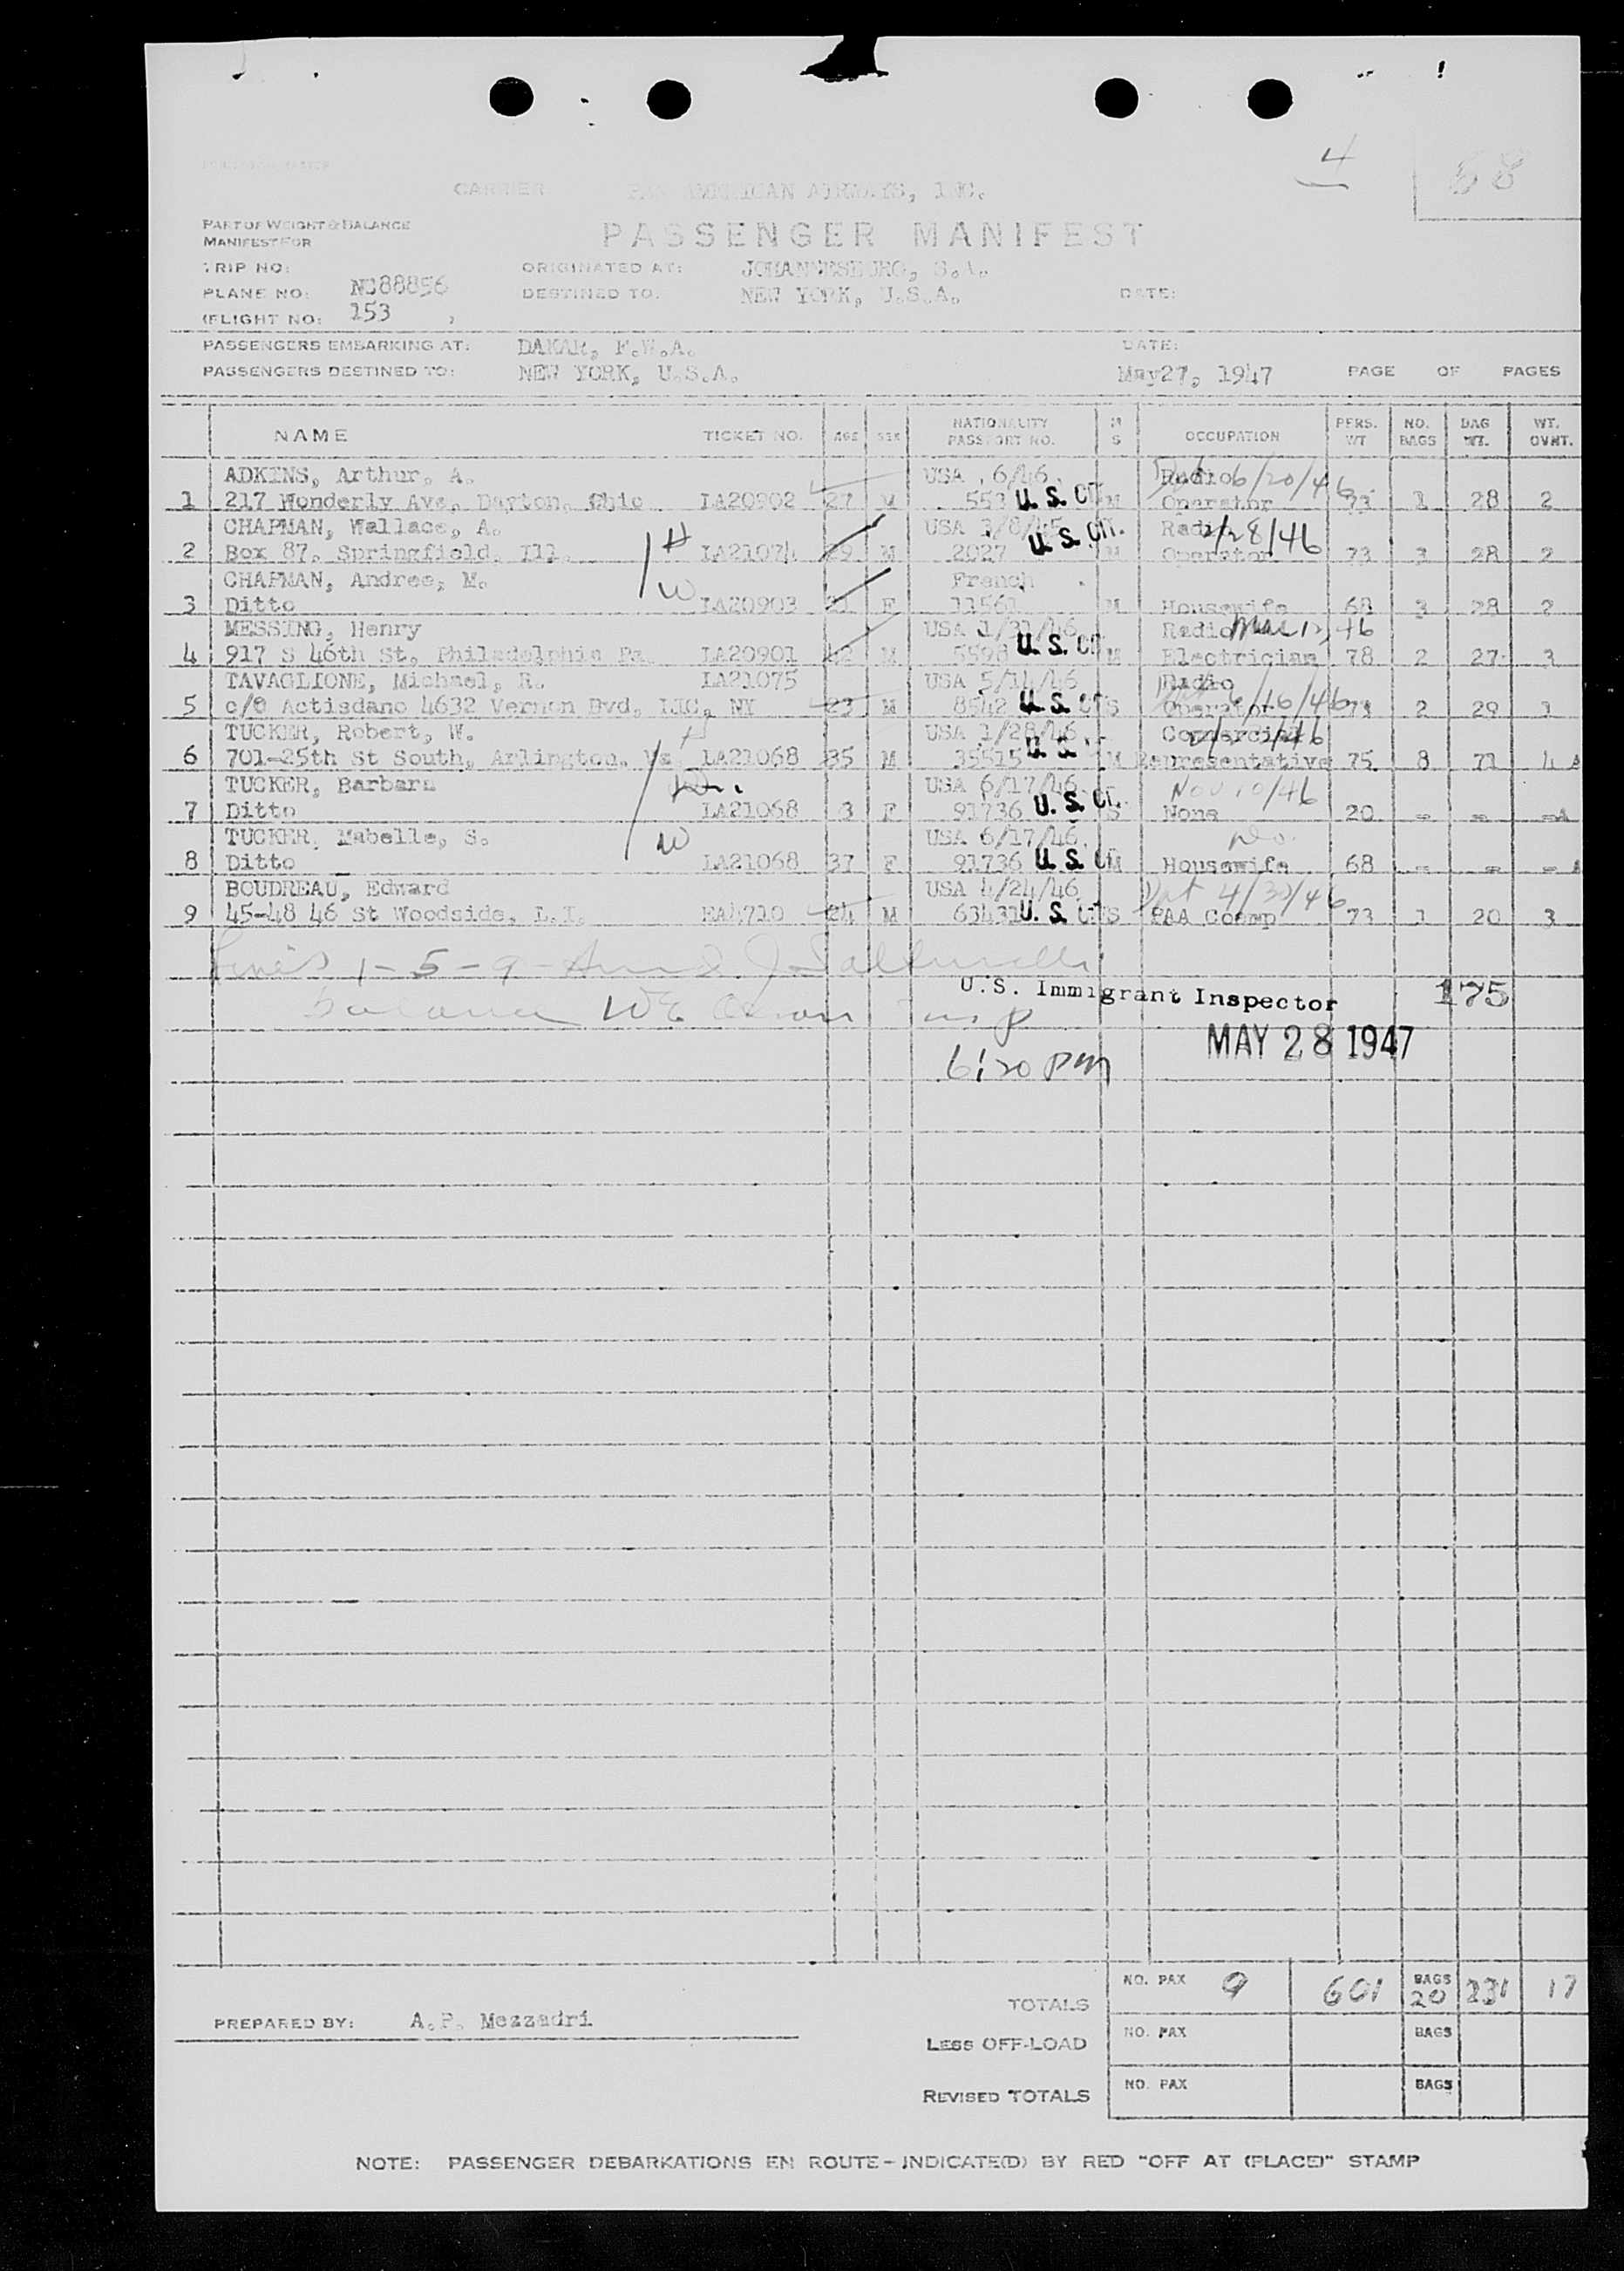 4
68
CARRIER PAN AMERICAN AIRWAYS, INC.
PART OF WEIGHT & BALANCE
MANIFEST FOR
PASSENGER MANIFEST
TRIP NO:
ORIGINATED AT: JOHANNESBURG, S.A.
PLANE NO: NC88856
DESTINED TO: NEW YORK, U.S.A.
DATE:
(FLIGHT NO: 153 )
PASSENGERS EMBARKING AT: DAKAR, F.W.A.
DATE:
PASSENGERS DESTINED TO: NEW YORK, U.S.A.
May27, 1947 PAGE OF PAGES
NAME TICKET NO. AGE SEX NATIONALITY PASSPORT NO. M S OCCUPATION PERS. WT NO. BAGS BAG WT. WT. OVNT.
ADKINS, Arthur, A. USA 6/46 Radio 6/20/46
1 217 Wonderly Ave, Dayton, Ohio IA20902 27 M 553 U. S. CIT. M Operator 73 1 28 2
CHAPMAN, Wallace, A. USA 3/8/45 Radio 2/28/46
2 Box 87, Springfield, Ill. H IA21074 29 M 2027 U. S. CIT. M Operator 73 3 28 2
CHAPMAN, Andree, M. French
3 Ditto W IA20903 21 F 11561 M Housewife 68 3 28 2
MESSING, Henry USA 1/31/46 Radio Mar 12, 46
4 917 S 46th St, Philadelphia Pa IA20901 42 M 5598 U. S. CIT M Electrician 78 2 27 3
TAVAGLIONE, Michael, R. IA21075 USA 5/14/46 Radio
5 c/o Actisdano 4632 Vernon Bvd, LIC, NY 23 M 8542 U. S. CIT S Operator 6/16/46 73 2 29 1
TUCKER, Robert, W. H USA 1/28/46 Commercial
6 701-25th St South, Arlington, Va IA21068 35 M 35515 U. S. M Representative 75 8 71 4
TUCKER, Barbara USA 6/17/46 Nov 10/46
7 Ditto IA21068 3 F 91736 U. S. CIT. S None 20 - - -
TUCKER, Mabelle, S. W USA 6/17/46 Do.
8 Ditto IA21068 37 F 91736 U. S. CIT M Housewife 68 - - -
BOUDREAU, Edward USA 4/24/46 Dpt 4/30/46
9 45-48 46 St Woodside, L.I. EA4710 24 M 63431 U. S. CIT S PAA Coemp 73 1 20 3
Lines 1-5-9
U.S. Immigrant Inspector 175
Balance
MAY 28 1947
6:20 PM
PREPARED BY: A.P. Mezzadri
TOTALS NO. PAX 9 601 BAGS 20 231 17
LESS OFF-LOAD NO. PAX BAGS
REVISED TOTALS NO. PAX BAGS
NOTE: PASSENGER DEBARKATIONS EN ROUTE - INDICATE(D) BY RED "OFF AT (PLACE)" STAMP